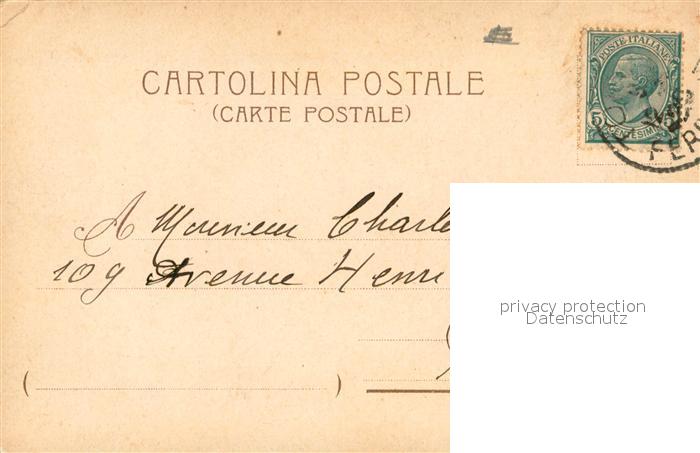 CARTOLINA POSTALE
(CARTE POSTALE)
POSTE ITALIANE
5 CENTESIMI
FER
A Monsieur Charle
109 Avenue Henri
privacy protection
Datenschutz